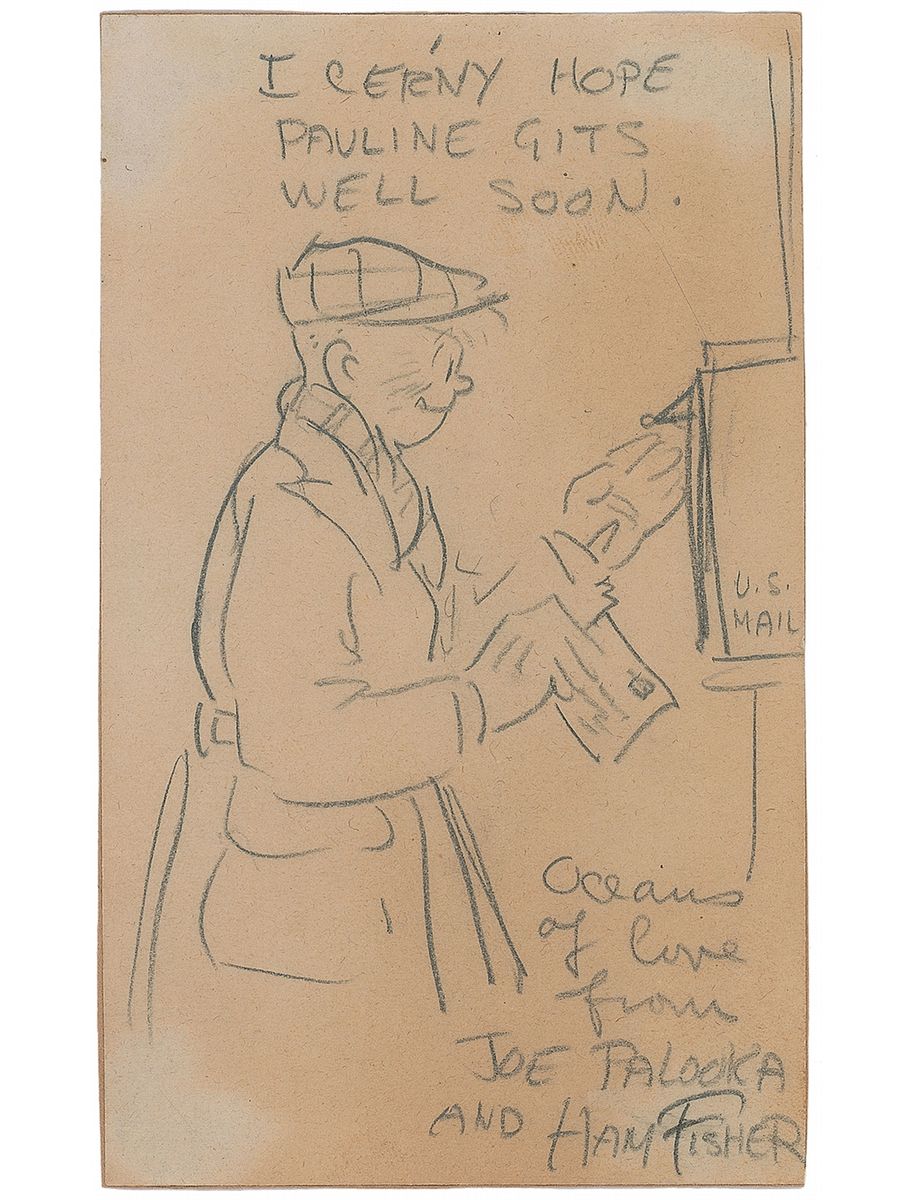 I CER'NY HOPE
PAULINE GITS
WELL SOON.
U.S.
MAIL
Oceans
of love
from
JOE PALOOKA
AND HAM FISHER